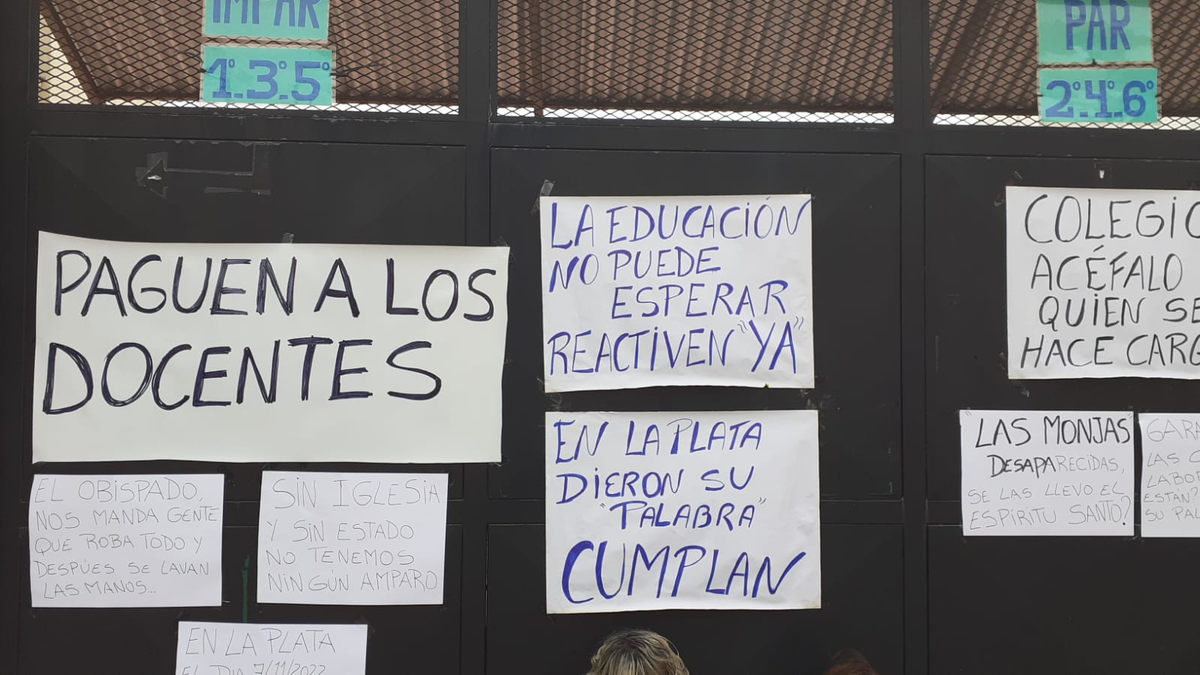 IMPAR
1º.3º.5º
PAR
2º.4º.6º
PAGUEN A LOS
DOCENTES
LA EDUCACIÓN
NO PUEDE
ESPERAR
REACTIVEN "YA"
COLEGIO
ACÉFALO
QUIEN SE
HACE CARG
EN LA PLATA
DIERON SU
"PALABRA"
CUMPLAN
LAS MONJAS
DESAPARECIDAS,
SE LAS LLEVO EL
ESPIRITU SANTO?
GARA
LAS C
LABO
ESTAN
SU PAL
EL OBISPADO,
NOS MANDA GENTE
QUE ROBA TODO Y
DESPÚES SE LAVAN
LAS MANOS...
SIN IGLESIA
Y SIN ESTADO
NO TENEMOS
NINGÚN AMPARO
EN LA PLATA
EL DIA 7/11/2022